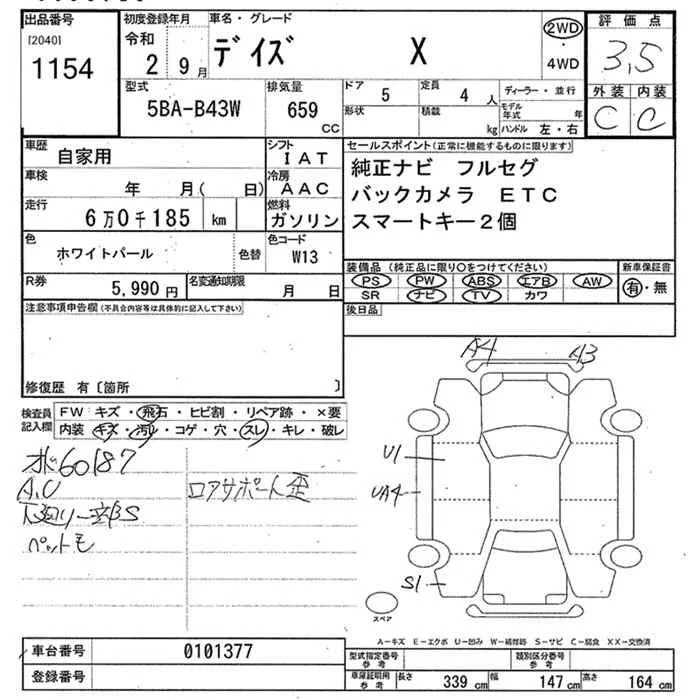 出品番号
[2040]
1154
初度登録年月
令和
2 9月
車名・グレード
デイズ X
2WD
・
4WD
評価点
3,5
外装 内装
C C
型式
5BA-B43W
排気量
659
CC
ドア 5
定員 4 人
形状
積載 kg
ディーラー・並行
モデル年式 年
ハンドル 左・右
車歴
自家用
シフト
IAT
車検
年 月( 日)
冷房
AAC
走行
6万0千185 km
燃料
ガソリン
色
ホワイトパール
色替
色コード
W13
R券
5,990円
名変通知期限
月 日
セールスポイント(正常に機能するものに限ります)
純正ナビ フルセグ
バックカメラ ETC
スマートキー2個
装備品(純正品に限り○をつけてください)
PS PW ABS エアB AW
SR ナビ TV カワ
新車保証書
有・無
後日品
注意事項申告欄(不具合内容等は具体的に記入して下さい)
修復歴 有〔箇所 〕
検査員記入欄
FW キズ・飛石・ヒビ割・リペア跡・×要
内装 キズ・汚れ・コゲ・穴・スレ・キレ・破レ
水60187
A,U
下廻り一部S
ペットモ
ロアサポート歪
A4 A3
U1
UA4
S1
スペア
A-キズ E-エクボ U-凹み W-補修跡 S-サビ C-腐食 XX-交換済
車台番号
0101377
登録番号
型式指定番号
参考
類別区分番号
参考
車庫証明用
参考
長さ 339 cm 幅 147 cm 高さ 164 cm